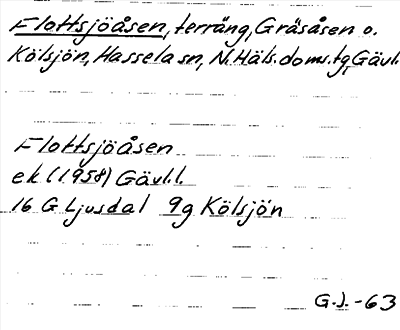 Flottsjöåsen, terräng, Gräsåsen o.
Kölsjön, Hassela sn, N. Häls. doms. tg, Gävl.
Flottsjöåsen
ek (1958) Gävl.l.
16 G Ljusdal 9g Kölsjön
G.J. -63